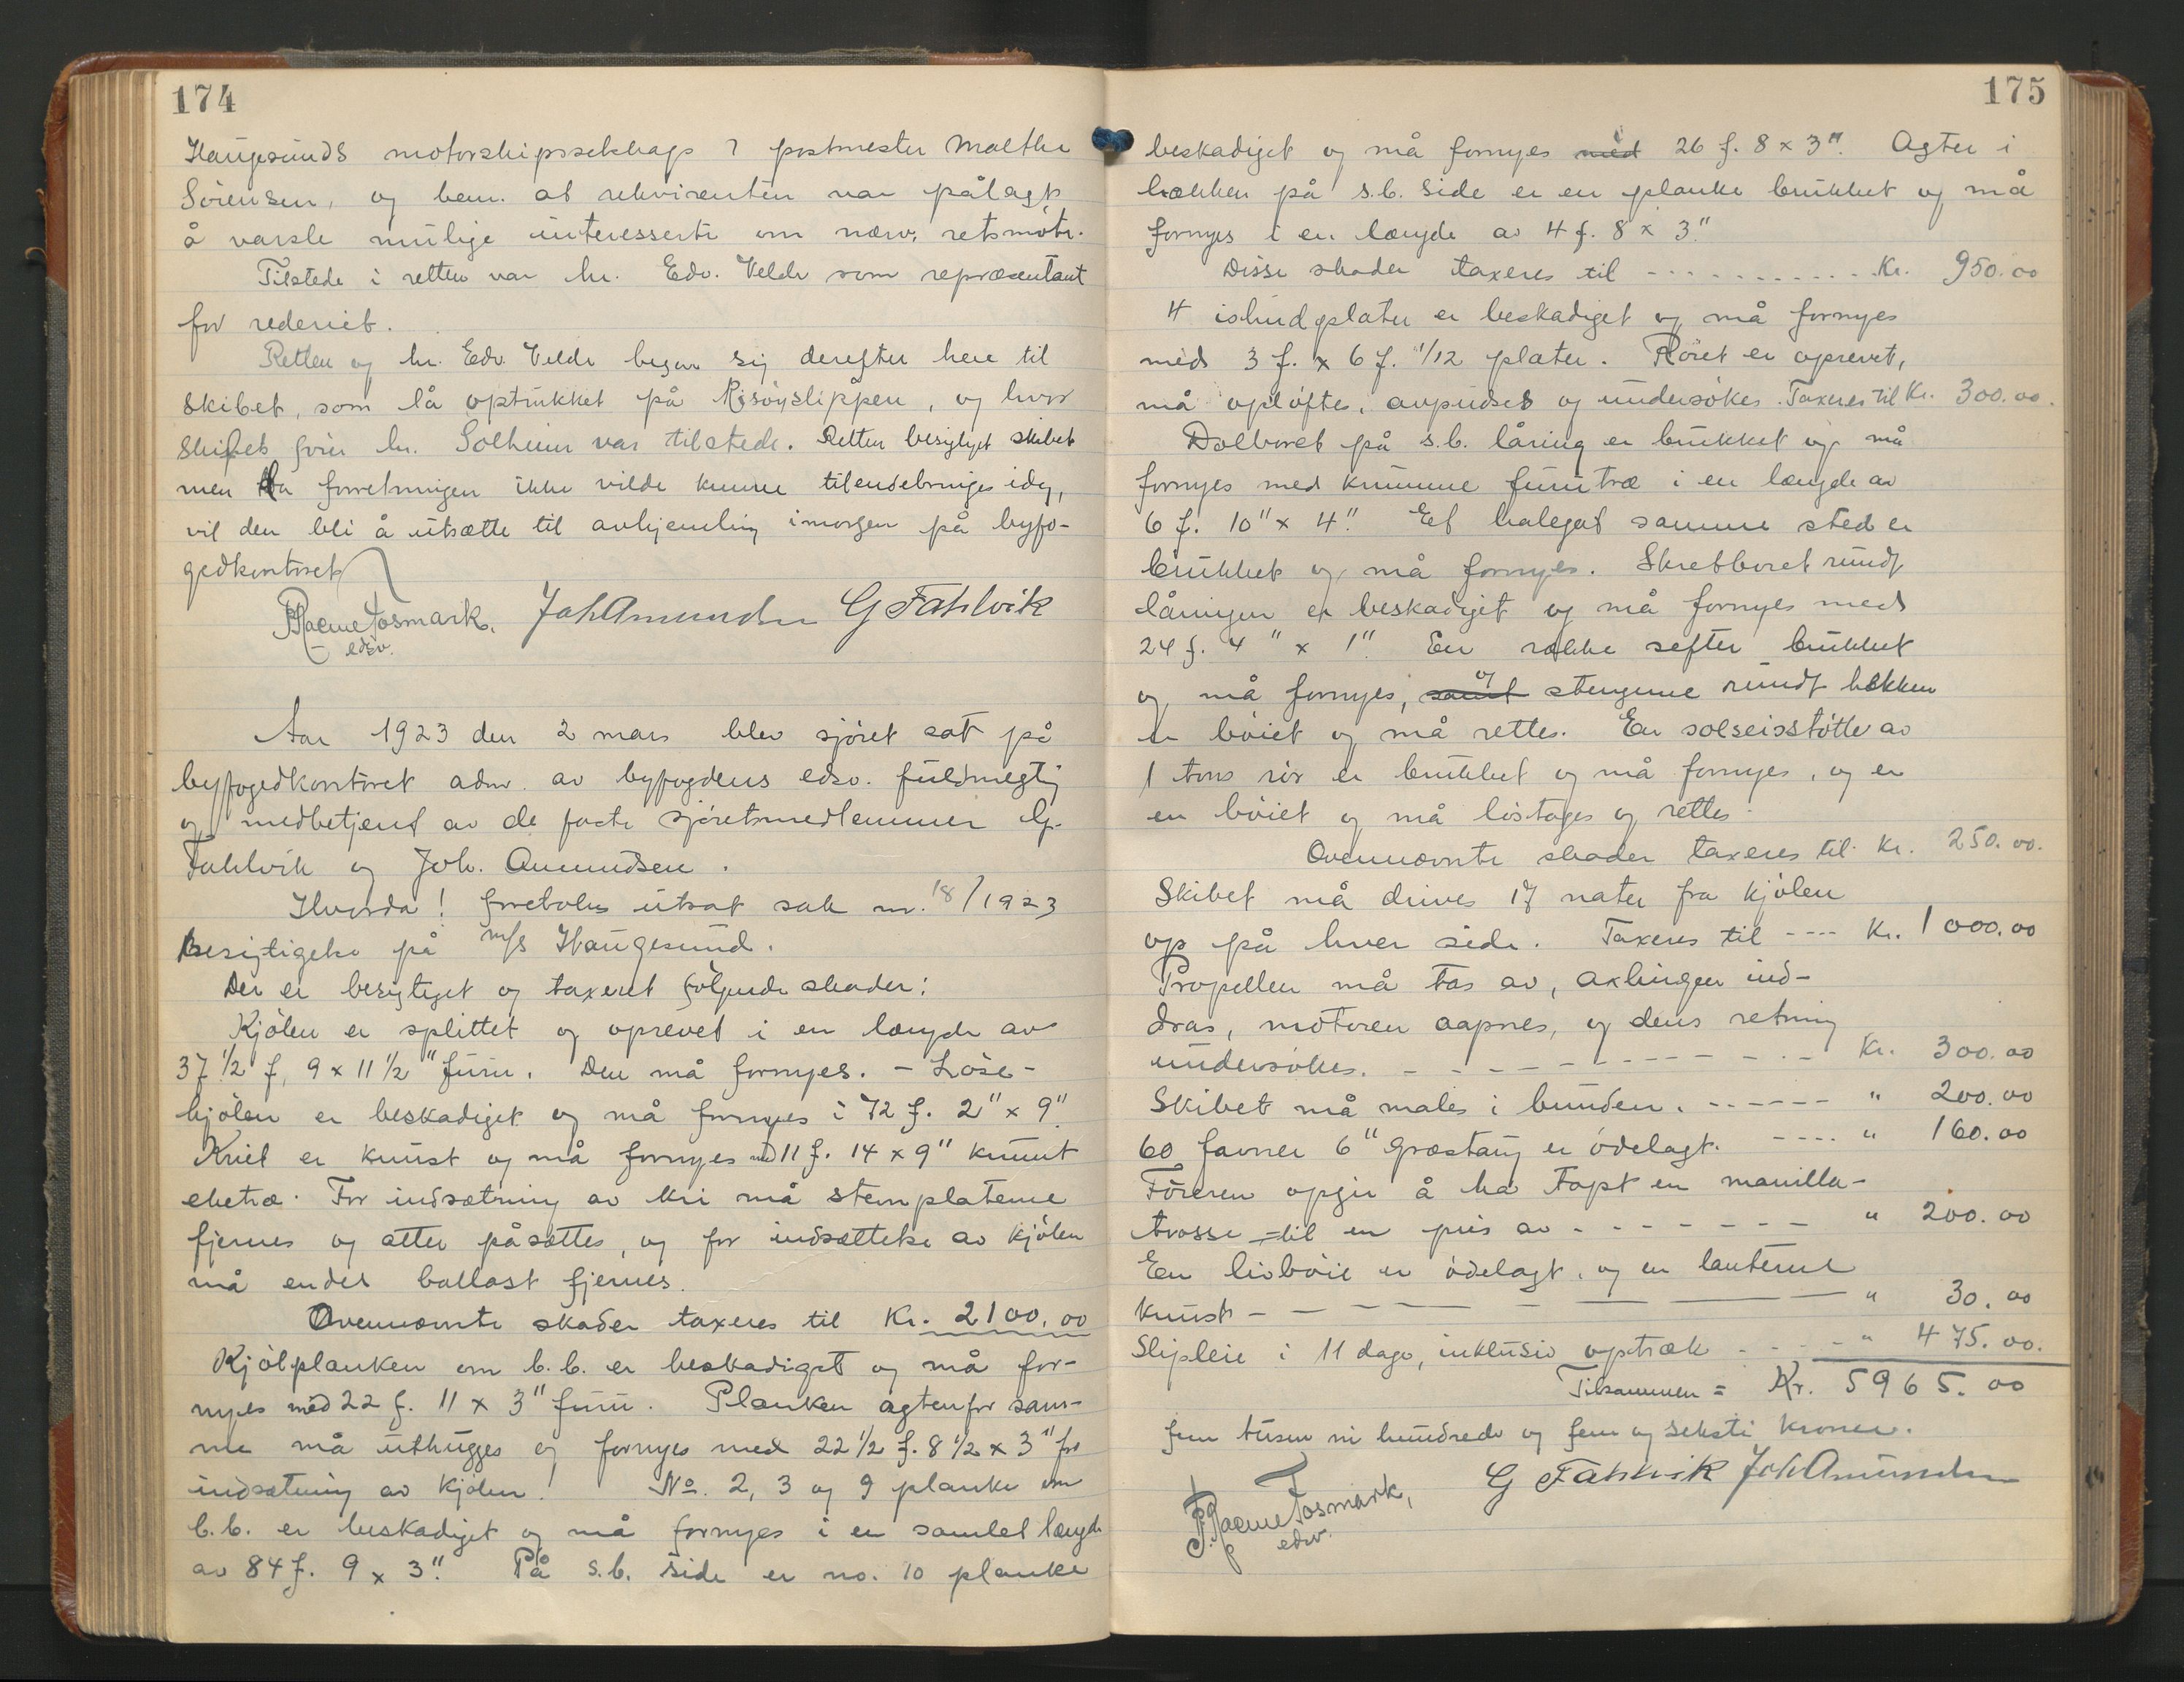 174
Haugesunds motorskipsselskap ? postmester Malthe
Sörensen, og bem. at rekvirenten var pålagt
å varsle mulige interesserte om nærv. retsmöte.
Tilstede i retten var hr. Edv. Velde som repræsentant
for rederiet.
Retten og hr. Edv. Velde begav sig derefter hen til
skibet, som lå optrukket på Risöyslippen, og hvor
skibets förer hr. Solheim var tilstede. Retten besigtiget skibet
men da forretningen ikke vilde kunne tilendebringes idag,
vil den bli å utsætte til avhjemling imorgen på byfo-
gedkontoret
Raeme Fosmark, Joh Amundsen G Fahlvik
edsv.
Aar 1923 den 2 mars blev sjöret sat på
byfogedkontoret adm. av byfogdens edsv. fuldmegtig
og medbetjent av de faste sjöretsmedlemmer G.
Fahlvik og Joh. Amundsen.
Hvorda! foretokes utsat sak nr. 18/1923
besigtigelse på m/s Haugesund.
Der er besigtiget og taxeret fölgende skader:
Kjölen er splittet og oprevet i en længde av
37 1/2 f, 9 x 11 1/2" furu. Den må fornyes. - Löse-
kjölen er beskadiget og må fornyes i 72 f. 2" x 9".
Kniet er knust og må fornyes med 11 f. 14 x 9" krumt
eketræ. For indsætning av kni må stemplatene
fjernes og atter påsættes, og for indsættelse av kjölen
må endel ballast fjernes.
Ovennævnte skader taxeres til Kr. 2100.00
Kjölplanken om b.b. er beskadiget og må for-
nyes med 22 f. 11 x 3" furu. Planken agtenfor sam-
me må uthugges og fornyes med 22 1/2 f. 8 1/2 x 3" for
indsætning av kjölen! No. 2, 3 og 9 planke om
b.b. er beskadiget og må fornyes i en samlet længde
av 84 f. 9 x 3". På s.b. side er no. 10 planke
175
beskadiget og må fornyes med 26 f. 8 x 3". Agter i
hækken på s.b. side er en planke brukket og må
fornyes i en længde av 4 f. 8 x 3".
Disse skader taxeres til - - - - - - - - - - - Kr. 950.00
4 ishudplater er beskadiget og må fornyes
med 3 f. x 6 f. 1/12 plater. Röret er oprevet,
må oplöftes, avpudses og undersökes. Taxeres til Kr. 300.00.
Dolboret på s.b. låring er brukket og må
fornyes med krumme furutræ i en længde av
6 f. 10" x 4". Et halegat samme sted er
brukket og må fornyes. Skvetboret rundt
låringen er beskadiget og må fornyes med
24 f. 4" x 1". En række sefter brukket
og må fornyes, samt og stengene rundt hækken
er böiet og må rettes. En solseisstötte av
1 toms rör er brukket og må fornyes, og en
en böiet og må löstages og rettes.
Ovennævnte skader taxeres til Kr. 250.00.
Skibet må drives 17 nater fra kjölen
op på hver side. Taxeres til ---- Kr. 1 000.00
Propellen må tas av, axlingen ind-
dras, motoren aapnes, og dens retning
undersökes. - - - - - - - - - - Kr. 300.00
Skibet må males i bunden. - - - - - - " 200.00
60 favner 6" græstaug er ödelagt. ---- " 160.00
Föreren opgir å ha tapt en manilla-
trosse - til en pris av - - - - - - - " 200.00
En livböie er ödelagt, og en lanterne
knust - - - - - - - - " 30.00
Slipleie i 11 dage, inklusiv optræk - - - - " 475.00.
Tilsammen = Kr. 5965.00
fem tusen ni hundrede og fem og seksti kroner.
Raeme Fosmark, G Fahlvik Joh Amundsen
edsv.